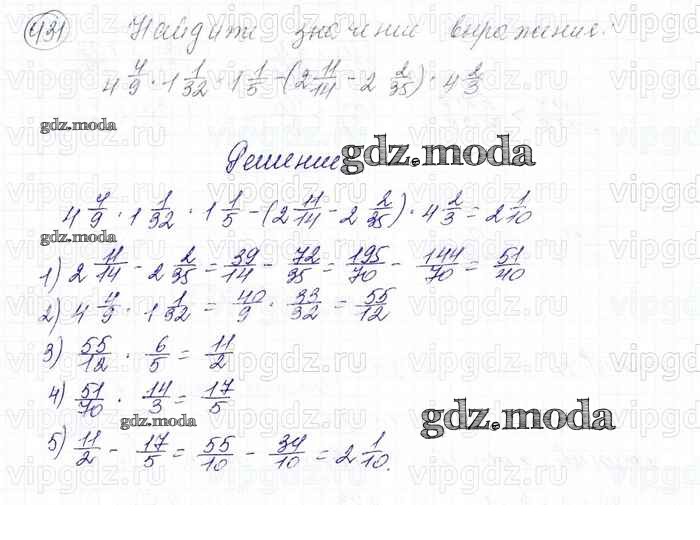 431 Найдите значение выражение:
4 4/9 · 1 1/32 · 1 1/5 - (2 11/14 - 2 2/35) · 4 2/3
gdz.moda
Решение gdz.moda
4 4/9 · 1 1/32 · 1 1/5 - (2 11/14 - 2 2/35) · 4 2/3 = 2 1/10
gdz.moda
1) 2 11/14 - 2 2/35 = 39/14 - 72/35 = 195/70 - 144/70 = 51/40
2) 4 4/9 · 1 1/32 = 40/9 · 33/32 = 55/12
3) 55/12 · 6/5 = 11/2
4) 51/70 · 14/3 = 17/5
gdz.moda gdz.moda
5) 11/2 - 17/5 = 55/10 - 34/10 = 2 1/10.